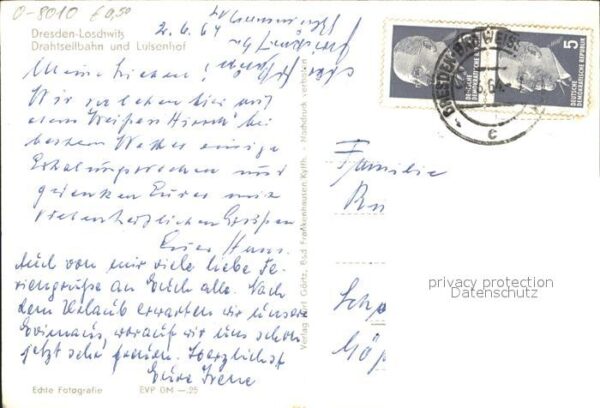 0-8010 €0,50
Dresden-Loschwitz
Drahtseilbahn und Luisenhof
2. 6. 64
Meine Lieben!
Wir verleben hier auf
dem Weißen Hirsch bei
bestem Wetter einige
Erholungswochen und
gedenken Eurer mit
recht herzlichen Grüßen
Euer Hans.
Auch von mir viele liebe Fe-
riengrüße an Euch alle. Nach
dem Urlaub erwarten wir unsere
worauf wir uns schon
jetzt sehr freuen. Herzlichst
Eure Irene
Echte Fotografie EVP DM —.25
Verlag Karl Görtz, Bad Frankenhausen Kyffh. - Nachdruck verboten
DEUTSCHE
DEMOKRATISCHE REPUBLIK
5
DRESDEN BAD WEISSER
6.64
c
Familie
privacy protection
Datenschutz